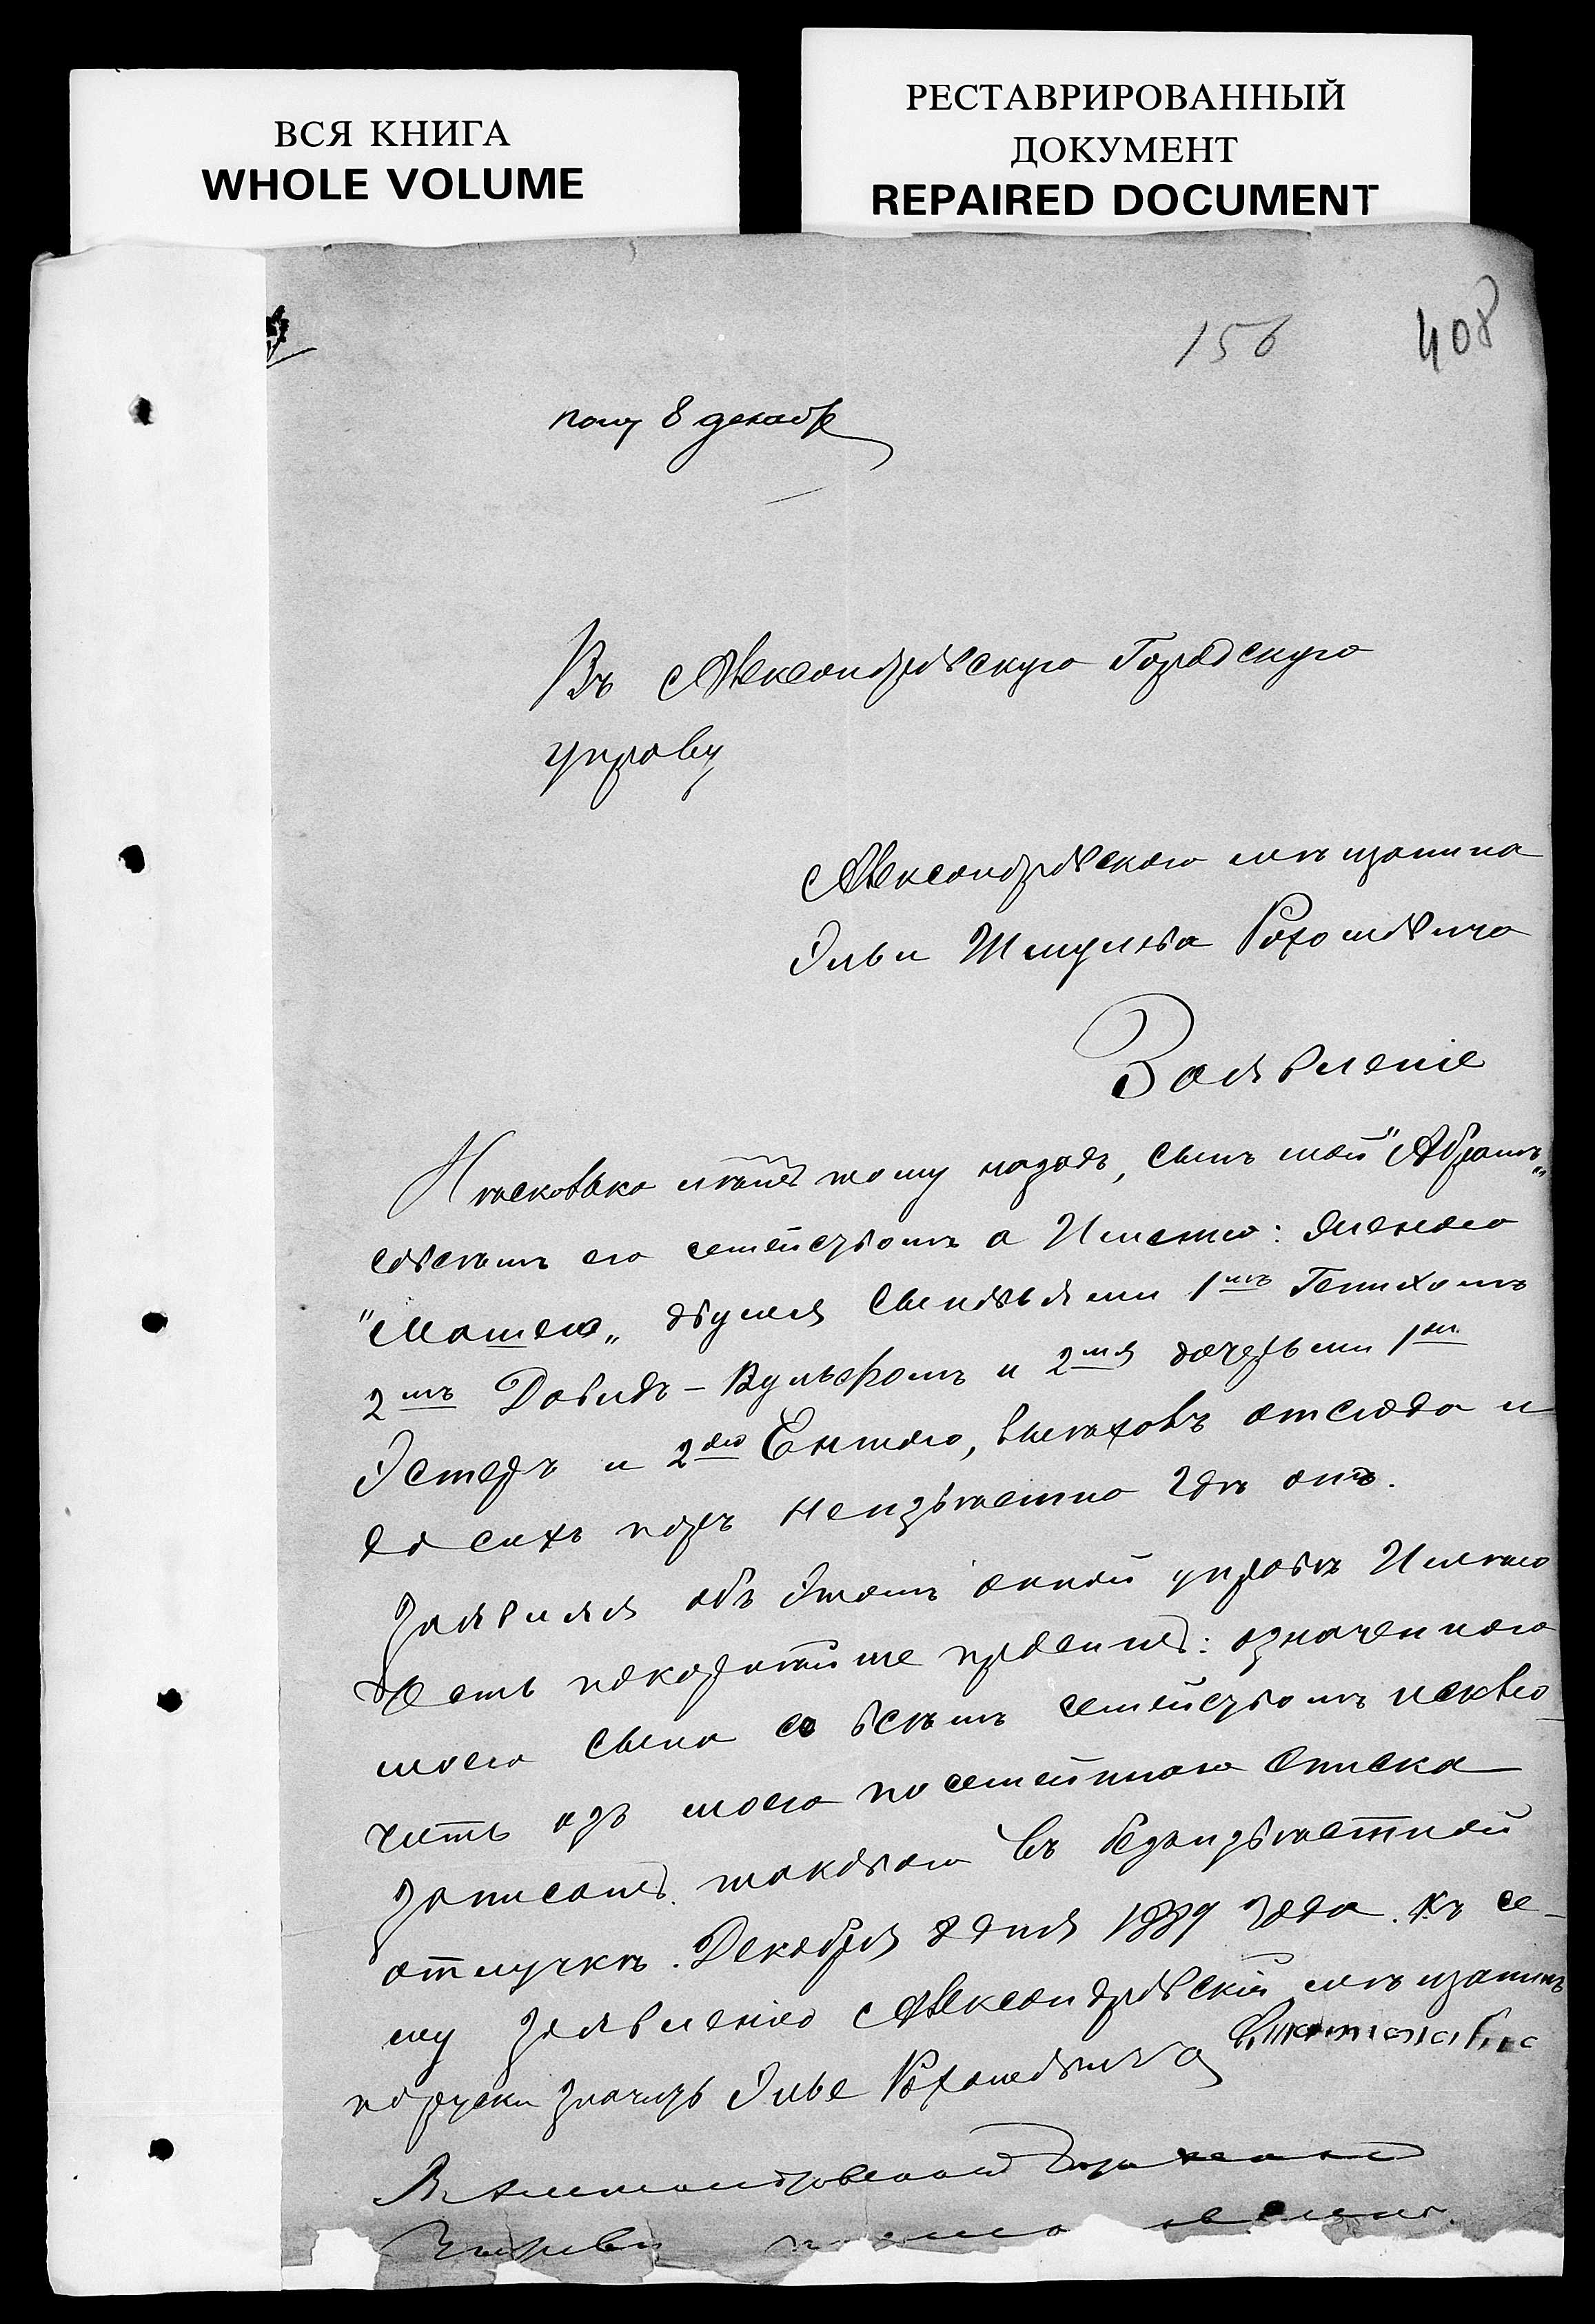 ВСЯ КНИГА
WHOLE VOLUME
РЕСТАВРИРОВАННЫЙ
ДОКУМЕНТ
REPAIRED DOCUMENT
156
408
пол 8 декабр
Въ Александровскую Городскую
управу
Александровского мѣщанина
Эльи Шмулева Рохомовича
Заявленіе
Нѣсколько лѣтъ тому назадъ, сынъ мой "Абрамъ"
совсѣмъ его семействомъ а Именно: женою
"Машею" двумя сыновьями 1мъ Генихомъ
2мъ Довидъ-Вульфомъ и 2мя дочерьми 1ою
Эстеръ и 2ою Ентою, выѣховъ отсюда и
до сихъ поръ неизвѣстно гдѣ онъ.
Заявляя объ этомъ оной управѣ Имѣю
честь покорнѣйше просить: означенного
моего сына со всѣмъ семействомъ исклю-
чить изъ моего посемейного списка
записавъ таковаго въ безъизвѣстной
отлучкѣ. Декабря 8 дня 1889 года. Къ се-
му заявленію Александровскій мѣщанинъ
по руски значитъ Элье Рохомовича
В Александровской Городской
Управы